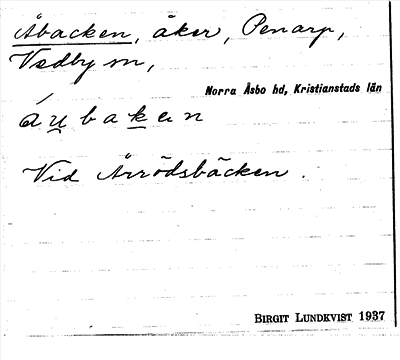 Åbacken, åker, Penarp,
Vedby sn,
Norra Åsbo hd, Kristianstads län
áu̯bakan
Vid Årrödsbäcken.
BIRGIT LUNDKVIST 1937